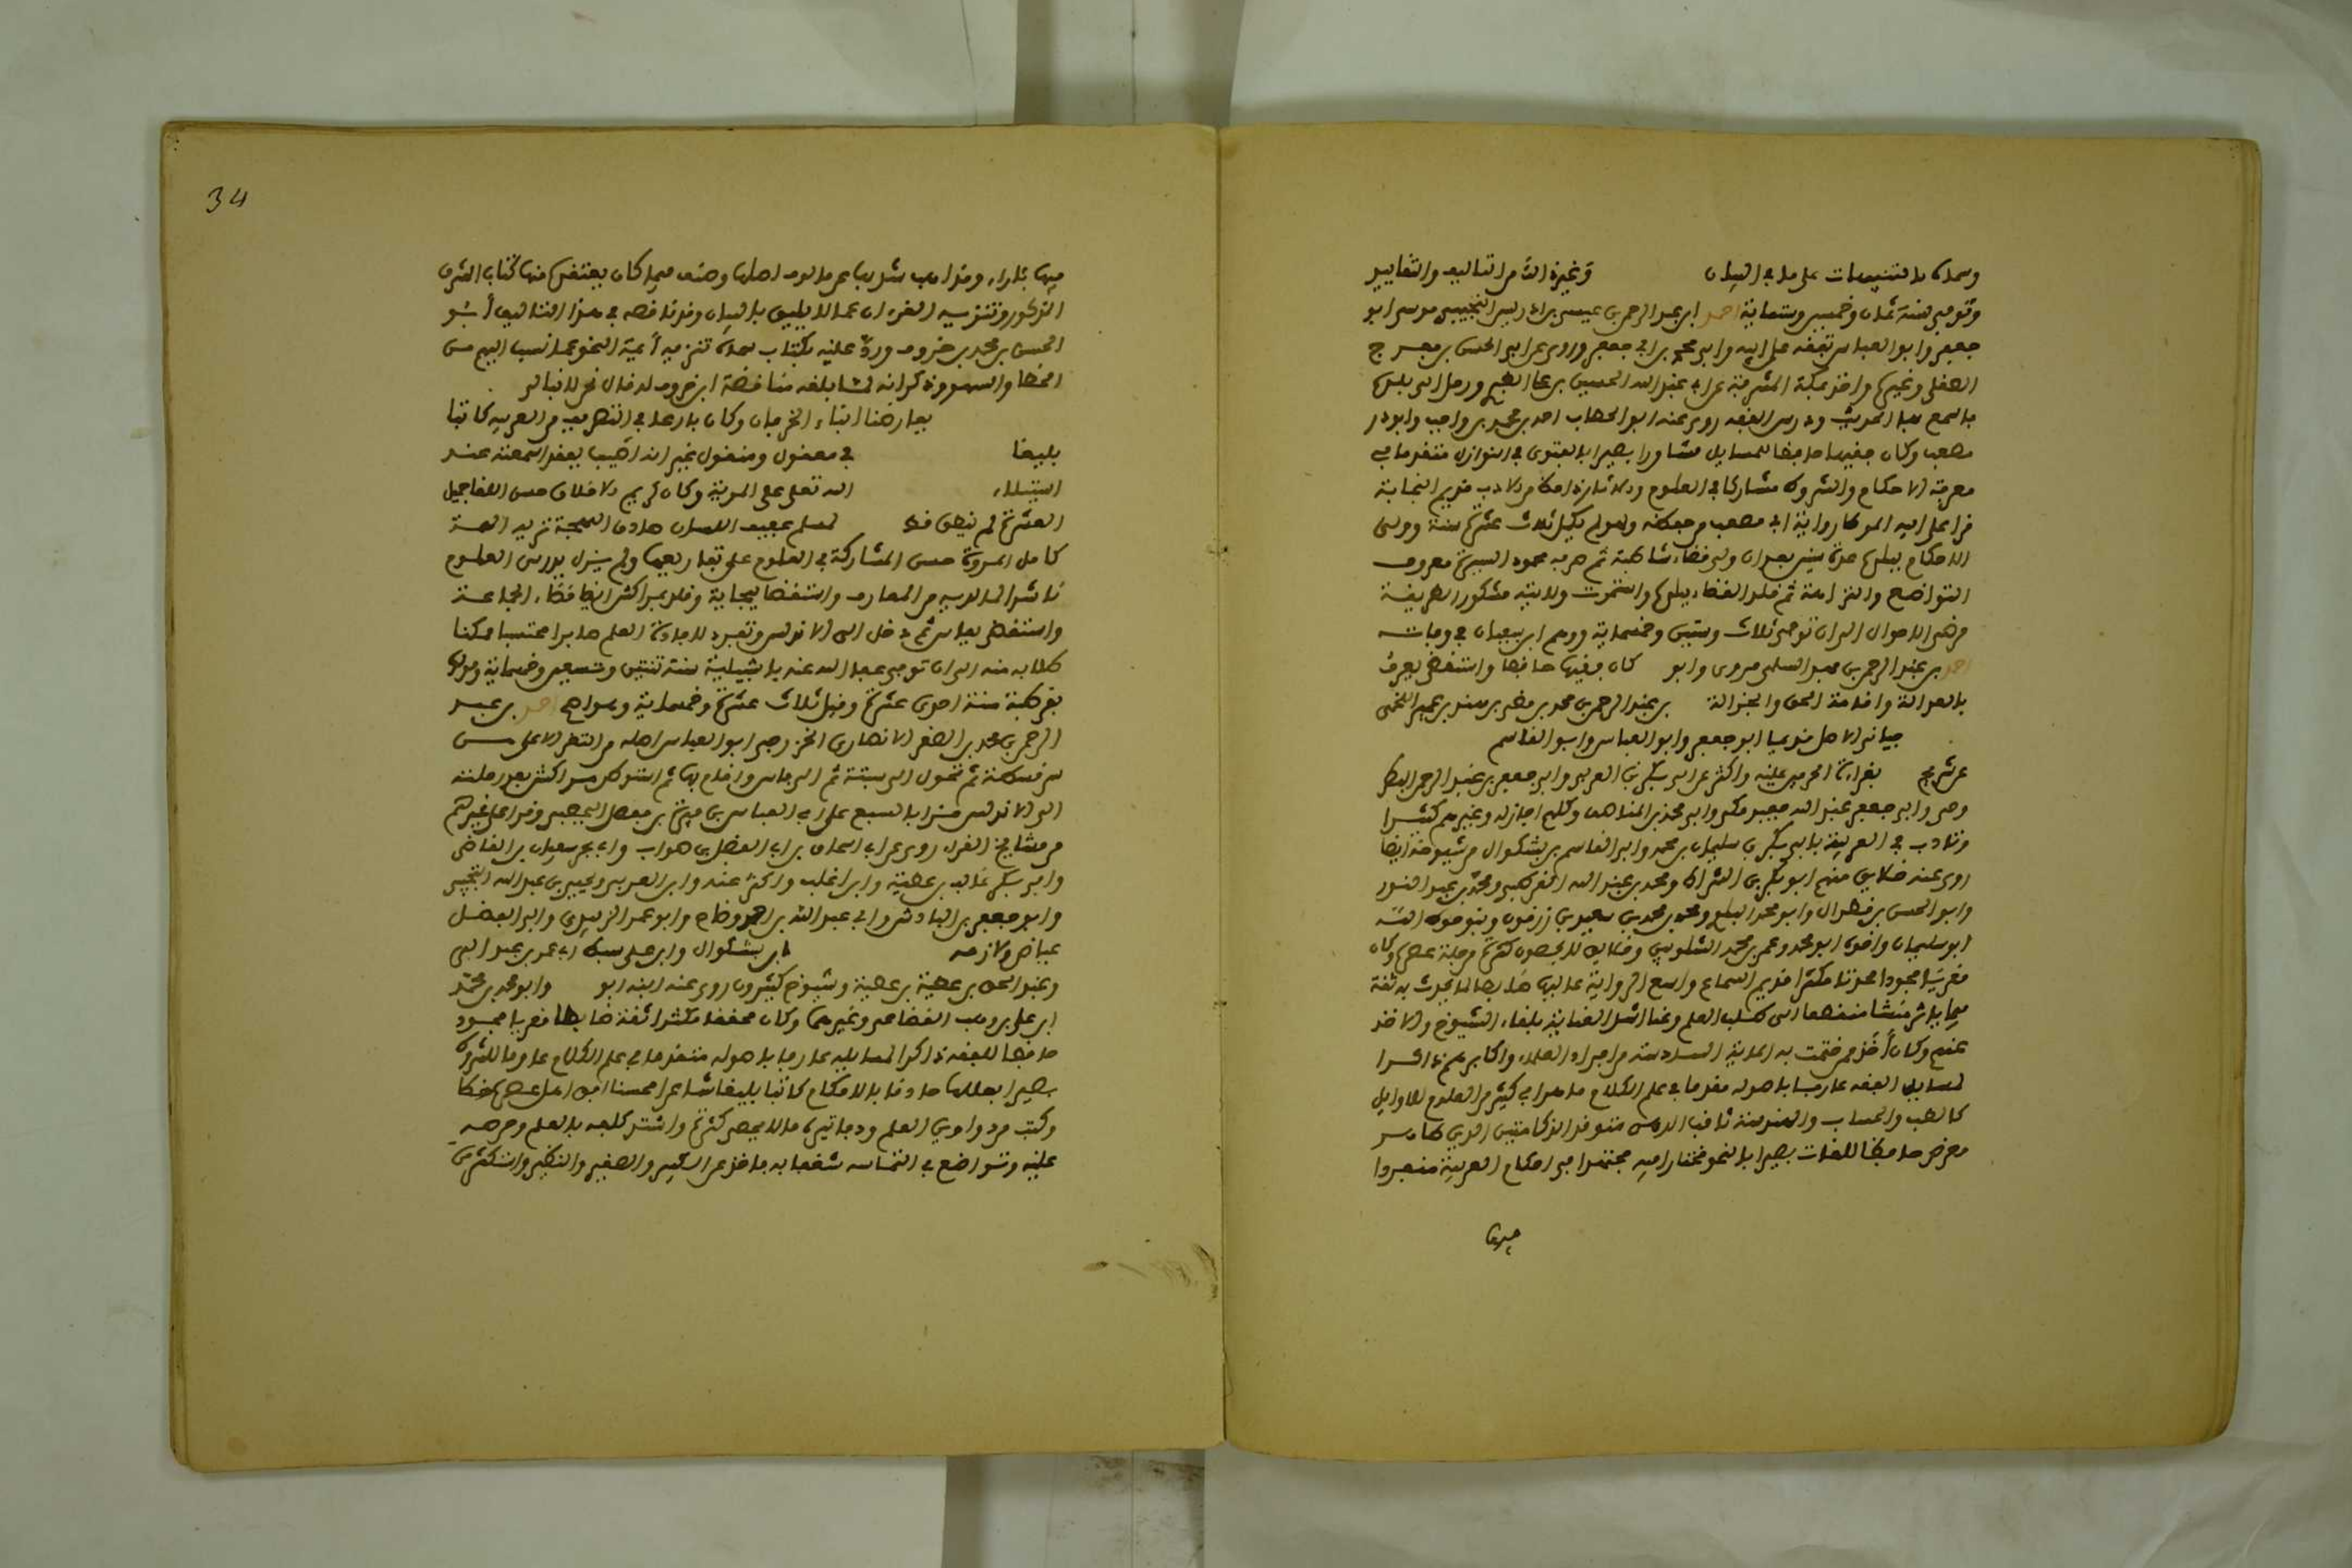 وسماه بالتنبيهات على ما في البيان وغيره الى من التاليف والتقاييد
وتوفي سنة ثمان وخمسين وستماية احمد ابن عبد الرحمن بن عيسى بن ادريس التجيبي مرسي ابو
جعفر وابو العباس تفقه على ابيه وابي محمد بن ابي جعفر وروى عن ابي الحسن بن مفرج
الصفلي وغيرها واخذ بمكة المشرفة عن ابي عبد الله الحسين بن علي الطبري ورحل الى بلنسية
فاسمع بها الحديث ودرس الفقه روى عنه ابو الخطاب احمد بن محمد بن واجب وابو ذر
مصعب وكان فقيها حافظا للمسايل مشاورا بصيرا بالفتوى في النوازل متقدما في
معرفة الاحكام والشروط مشاركا في العلوم قديم النجابة
قرا على ابيه الموطا رواية ابي مصعب من حفظه ولم يكمل ثلاث عشرة سنة وولي
الاحكام ببلده مدة سنين بعد ان ولي قضاء شاطبة ثم صرف محمود السيرة معروف
التواضع والنزاهة ثم قلد القضاء ببلده واستمرت ولايته مشكور الطريقة
مرضي الاحوال الى ان توفي ثلاث وستين وخمسماية ووهم ابن سفيان في وفاته
احمد بن عبد الرحمن بن عبد السلمي مروي وابو كان فقيها حافظا واستقضي بعرف
بالعدالة واقامة الحق والجزالة بن عبد الرحمن بن محمد بن مضر بن سند بن عمير اللخمي
جياني الاصل قديما ابو جعفر وابو العباس وابو القاسم
عن شريح بقراءة الحرمي عليه واكثر عن ابي بكر بن العربي وابي جعفر بن عبد الرحمن البطر
وجي وابي جعفر عبد الله حفيد مكي وابي محمد بن المناصف وكلهم اجاز له وغيرهم كثيرا
وتادب في العربية بابي بكر بن سليمان بن محمد وابي القاسم بن بشكوال من شيوخه ايضا
روى عنه خلايق منهم ابو بكر بن الشراط ومحمد بن عبد الله القرطبي ومحمد بن عبد النور
وابو الحسن بن قطرال وابو محمد البلوي ومحمد بن محمد بن سعيد بن زرقون وبنو حوط الله
ابو سليمان واخوه ابو محمد وعمر بن محمد الشلوبين وخلايق لا يحصون كثرة من جلة عصره وكان
مقريا مجودا محدثا مكثرا قديم السماع واسع الرواية عاليها ضابطا لما يحدث به ثقة
فيما ياثره نشا منقطعا الى طلب العلم وعنا اشد العناية بلقاء الشيوخ والاخذ
عنهم وكان احد من ختمت به الماية السادسة من افراد العلماء واكابرهم ذاكرا
لمسايل الفقه عارفا باصوله مقدما في علم الكلام ماهرا في كثير من العلوم للاوايل
كالطب والحساب والهندسة ثاقب الذهن متوقد الذكا متين الدين طاهر
العرض حافظا للغات بصيرا بالنحو مختارا فيه مجتهدا في احكام العربية منفردا
فيها
34
فيها باراء ومذاهب شذ بها عن مالوف اهلها وصنف فيما كان يعتقده منها كتابه المشرق
المذكور وتنزيه القرءان عما لا يليق بالبيان وقد ناقضه في هذا التاليف ابو
الحسن بن محمد بن خروف ورد عليه بكتاب سماه تنزيه أيمة النحو عما نسب اليهم من
الخطا والسهو وذكر انه لما بلغه مناقضة ابن خروف له قال نحن لا نبالي
بكباش النطاح بعارضنا ابناء الخرفان وكان بارعا في التصريف من العربية كاتبا
بليغا في معقول ومنقول غير انه اصيب بفقد اسمعته عند
استيلاء الله تعلى على المرية وكان كريم الاخلاق حسن اللقا جميل
العشرة لم ينطو قط لمسلم عفيف اللسان صادق اللهجة نزيه الهمة
كامل المروة حسن المشاركة في العلوم على تفاريعها ولم يزل يدرس العلوم
ناشرا لما لديه من المعارف واستقضا ببجاية وقلد بمراكش ايضا قضاء الجماعة
واستقضي بفاس ثم دخل الى الاندلس وتفرد لافادة العلم صابرا محتسبا ممكنا
طلابه منه الى ان توفي عفا الله عنه باشبيلية سنة ثنتين وتسعين وخمسماية ومولده
بقرطبة سنة احدى عشرة وقيل ثلاث عشرة وخمسماية احمد بن عبد
الرحمن بن محمد بن الصقر الانصاري الخزرجي ابو العباس اصله من الثغر الاعلى من
سرقسطة ثم تحول الى سبتة ثم الى فاس واقام بها ثم استوطن مراكش بعد رحلته
الى الاندلس قرا بالسبع على ابي العباس بن عيشون بن مفصل اليحصبي وقرا على غيرهم
من مشايخ القراء روى عن ابي اسحاق بن ابي الفضل بن صواب وابي بحر سفيان بن القاضي
وابي بكر غالب بن عطية وابن اغلب واكثر عنه وابن العربي ويحيى بن عبد الله التجيبي
وابو جعفر بن الباذش وابي عبد الله بن احمد وضاح وابو عمر الزبيدي وابي الفضل
عياض ولازمه ابن بشكوال وابن علي سبط ابي عمر بن عبد البر
وعبد الحق بن عطية بن عطية وشيوخ كثيرون روى عنه ابنه ابو وابو محمد بن محمد
ابن علي بن وهب القضاعي وغيرهما وكان محققا مكثرا ثقة ضابطا مقريا مجودا
حافظا للفقه ذاكرا لمسايله عارفا باصوله متقدما في علم الكلام عاقدا للشروط
بصيرا بعللها حاذقا بالاحكام كاتبا بليغا شاعرا محسنا انق اهل عصره خطا
وكتب من دواوين العلم ودفاتيره ما لا يحصى كثرة واشتد كلفه بالعلم وحرصه
عليه وتواضع في التماسه شغفا به فاخذ عن الكبير والصغير والنظير واستكثر من